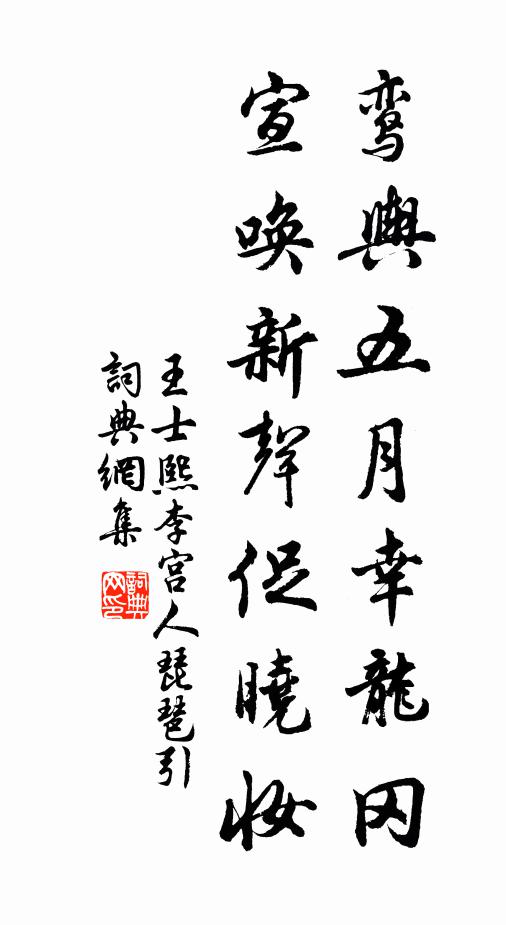 鸾輿五月幸龍冈
宣唤新聲促曉妆
王士熙李宮人琵琶引
詞典網集
詞典网印